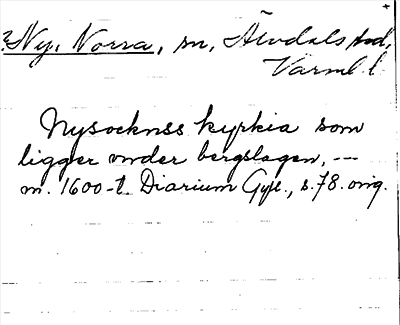 ? Ny, Norra, sn, Älvdals hd,
Värml. l.
Nysocknss kyrkia som
ligger vnder bergslagen, ---
m. 1600-t. Diarium Gyll., s. 78. orig.